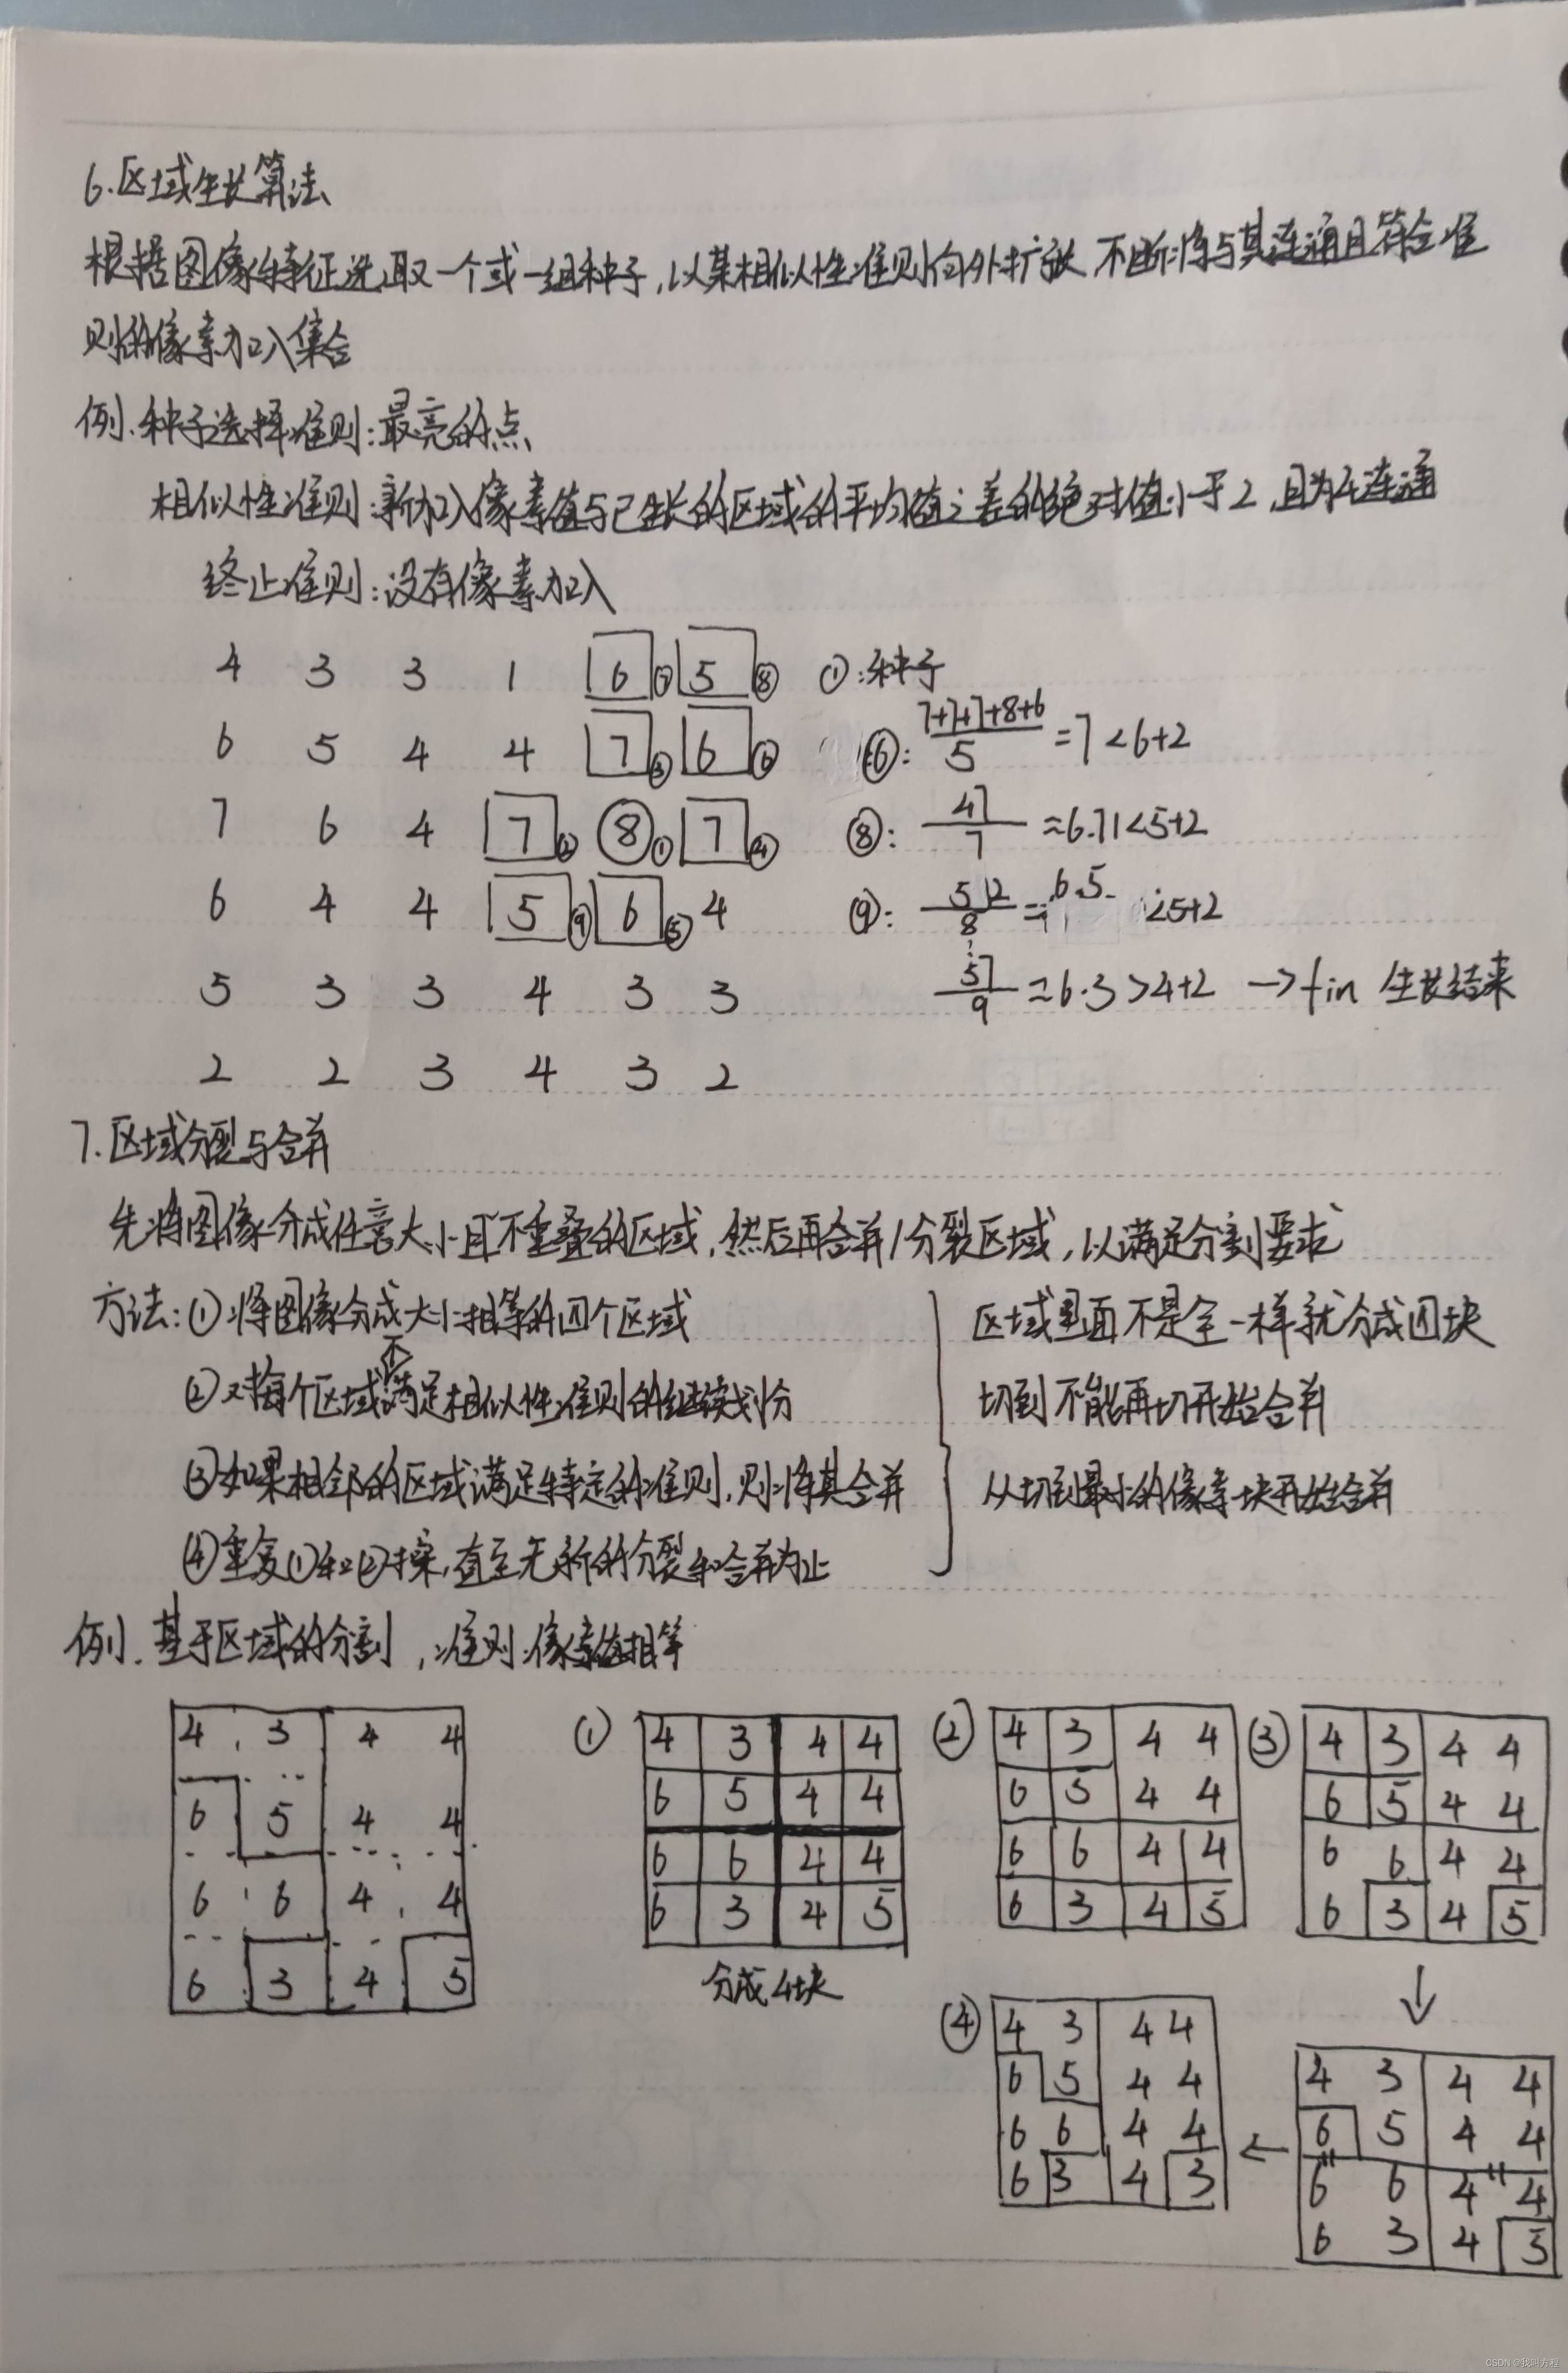 6.区域生长算法
根据图像特征选取一个或一组种子,以某相似性准则向外扩散 不断将与其连通且符合准
则的像素加入集合
例.种子选择准则:最亮的点
相似性准则:新加入像素值与已生长的区域的平均值之差的绝对值小于2,且为4连通
终止准则:没有像素加入
4 3 3 1 6⑦ 5⑧ ①:种子
6 5 4 4 7③ 6⑥ ⑥: 7+7+7+8+6/5 =7<6+2
7 6 4 7② 8① 7④ ⑧: 47/7 ≈6.71<5+2
6 4 4 5⑨ 6⑤ 4 ⑨: 52/8 = 6.5 <5+2
5 3 3 4 3 3 57/9 ≈6.3>4+2 →fin 生长结束
2 2 3 4 3 2
7.区域分裂与合并
先将图像分成任意大小且不重叠的区域,然后再合并/分裂区域,以满足分割要求
方法:①将图像分成大小相等的四个区域
②对每个区域不满足相似性准则的继续划分
③如果相邻的区域满足特定的准则,则将其合并
④重复①和②操,直至无新的分裂和合并为止
区域里面不是全一样就分成四块
切到不能再切开始合并
从切到最小的像素块开始合并
例.基于区域的分割,准则:像素值相等
4 3 4 4
6 5 4 4
6 6 4 4
6 3 4 5
①
4 3 4 4
6 5 4 4
6 6 4 4
6 3 4 5
分成4块
②
4 3 4 4
6 5 4 4
6 6 4 4
6 3 4 5
③
4 3 4 4
6 5 4 4
6 6 4 4
6 3 4 5
↓
4 3 4 4
6 5 4 4
6 6 4 4
6 3 4 5
←
④
4 3 4 4
6 5 4 4
6 6 4 4
6 3 4 3
CSDN @我叫方程